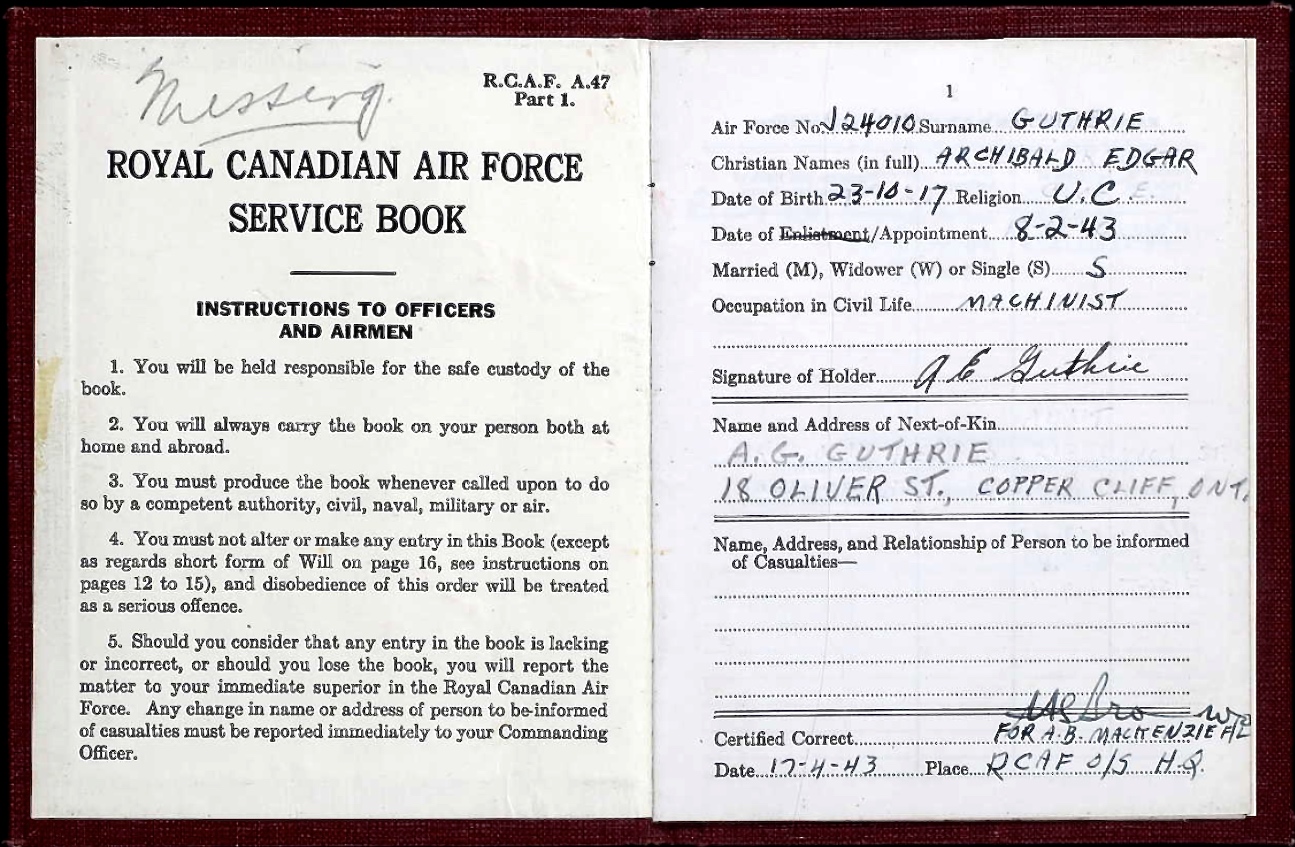 Missing.
R.C.A.F. A.47
Part 1.
ROYAL CANADIAN AIR FORCE
SERVICE BOOK
INSTRUCTIONS TO OFFICERS
AND AIRMEN
1. You will be held responsible for the safe custody of the
book.
2. You will always carry the book on your person both at
home and abroad.
3. You must produce the book whenever called upon to do
so by a competent authority, civil, naval, military or air.
4. You must not alter or make any entry in this Book (except
as regards short form of Will on page 16, see instructions on
pages 12 to 15), and disobedience of this order will be treated
as a serious offence.
5. Should you consider that any entry in the book is lacking
or incorrect, or should you lose the book, you will report the
matter to your immediate superior in the Royal Canadian Air
Force. Any change in name or address of person to be informed
of casualties must be reported immediately to your Commanding
Officer.
1
Air Force No. J24010 Surname GUTHRIE
Christian Names (in full) ARCHIBALD EDGAR
Date of Birth 23-10-17 Religion U.C.
Date of Enlistment/Appointment 8-2-43
Married (M), Widower (W) or Single (S) S
Occupation in Civil Life MACHINIST
Signature of Holder A E Guthrie
Name and Address of Next-of-Kin
A. G. GUTHRIE
18 OLIVER ST., COPPER CLIFF, ONT.
Name, Address, and Relationship of Person to be informed
of Casualties—
Certified Correct FOR A.B. MACKENZIE F/L
Date 17-4-43 Place RCAF O/S H.Q.